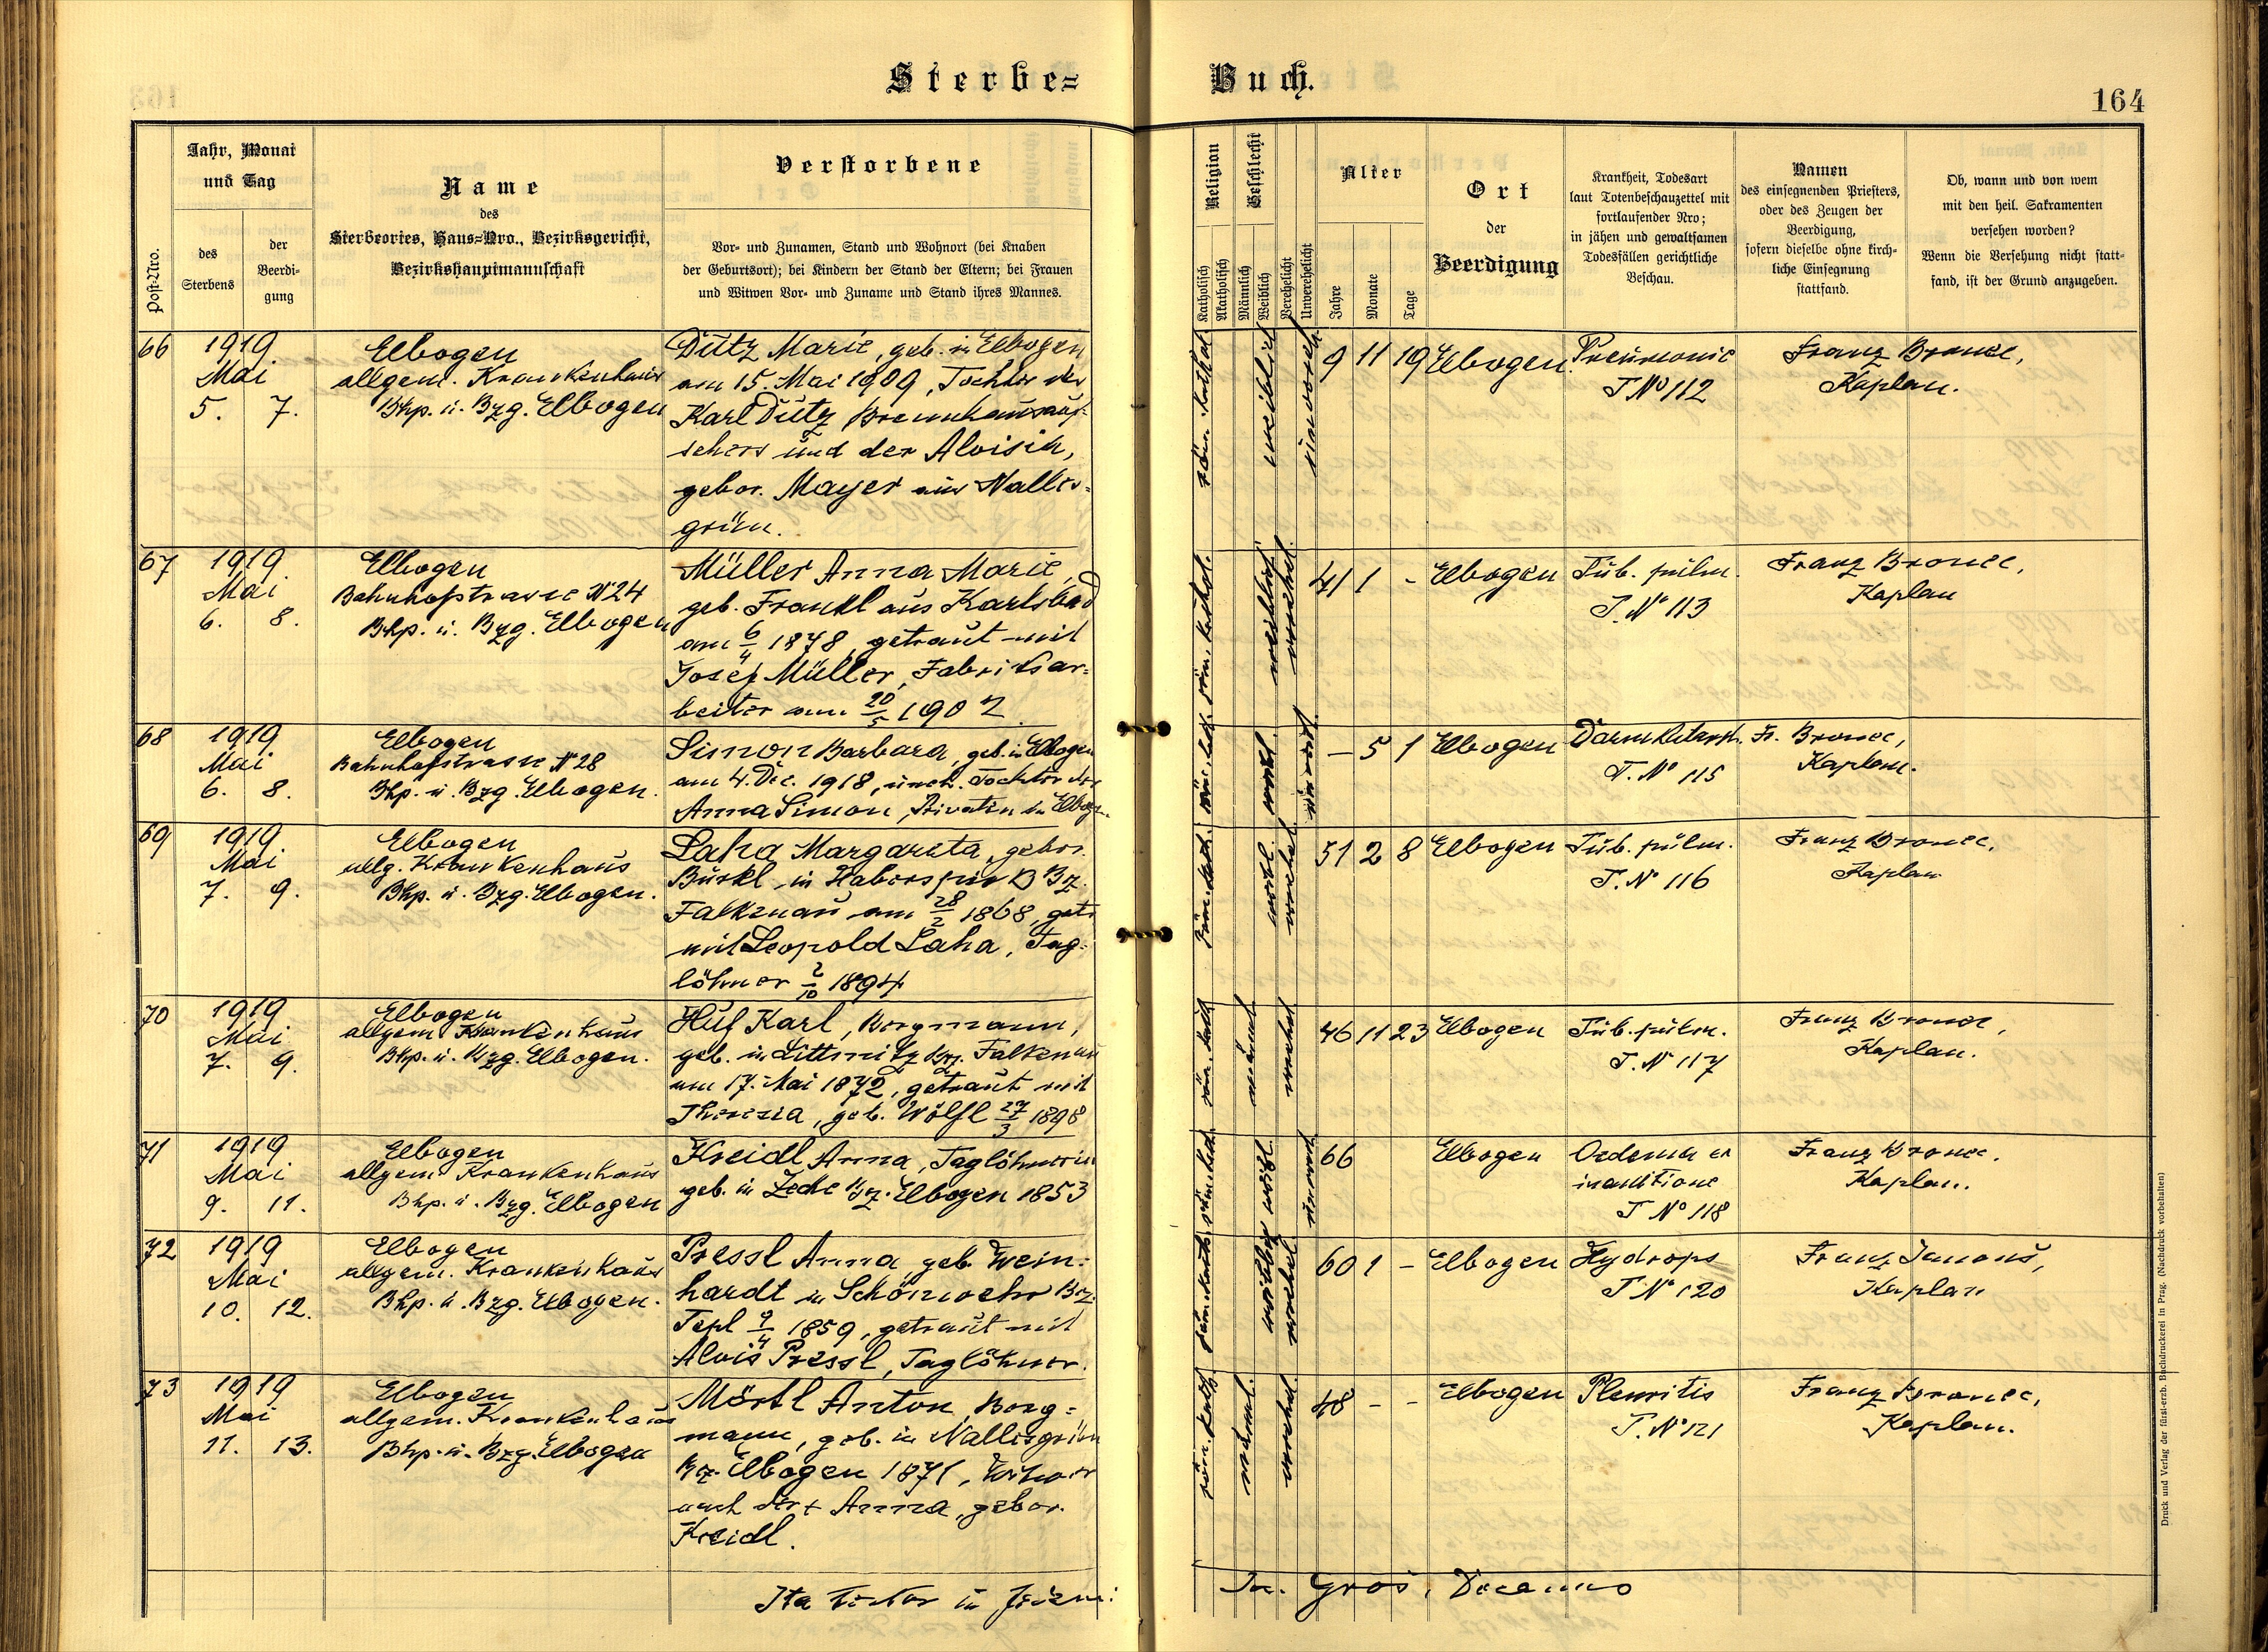 Sterbe-
Buch.
164
Post-Nro.
Jahr, Monat
und Tag
des
Sterbens
der
Beerdi-
gung
Name
des
Sterbeortes, Haus-Nro., Bezirksgericht,
Bezirkshauptmannschaft
Verstorbene
Vor- und Zunamen, Stand und Wohnort (bei Knaben
der Geburtsort); bei Kindern der Stand der Eltern; bei Frauen
und Witwen Vor- und Zuname und Stand ihres Mannes.
Religion
Katholisch
Akatholisch
Geschlecht
Männlich
Weiblich
Verehelicht
Unverehelicht
Alter
Jahre
Monate
Tage
Ort
der
Beerdigung
Krankheit, Todesart
laut Totenbeschauzettel mit
fortlaufender Nro;
in jähen und gewaltsamen
Todesfällen gerichtliche
Beschau.
Namen
des einsegnenden Priesters,
oder des Zeugen der
Beerdigung,
sofern dieselbe ohne kirch-
liche Einsegnung
stattfand.
Ob, wann und von wem
mit den heil. Sakramenten
versehen worden?
Wenn die Versehung nicht statt-
fand, ist der Grund anzugeben.
66
1919
Mai
5. 7.
Elbogen
allgem. Krankenhaus
Bhp. u. Bzg. Elbogen
Dutz Marie, geb. in Elbogen
am 15. Mai 1909, Tochter des
Karl Dutz Brennhausauf-
sehers und der Aloisia,
gebor. Mayer aus Nalles-
grün.
röm. kathol.
weiblich
unvereh.
9 11 19 Elbogen
Pneumonie
T No 112
Franz Bronec,
Kaplan.
67
1919
Mai
6. 8.
Elbogen
Bahnhofstrasse No 24
Bhp. u. Bzg. Elbogen
Müller Anna Marie,
geb. Frankl aus Karlsbad
am 6/4 1878, getraut mit
Josef Müller, Fabriksar-
beiter am 20/5 1907
röm. kathol.
weiblich
verehel.
41 1 - Elbogen
Tub. pulm.
T. No 113
Franz Bronec,
Kaplan
68
1919
Mai
6. 8.
Elbogen
Bahnhofstrasse No 28
Bhp. u. Bzg. Elbogen.
Simon Barbara, geb. in Elbogen
am 4. Dec. 1918, uneh. Tochter der
Anna Simon, Privatin in Elbogen
röm. kath.
weibl.
unvereh.
- 5 1 Elbogen
Darmkatarrh.
T. No 115
Fr. Bronec,
Kaplan.
69
1919
Mai
7. 9.
Elbogen
allg. Krankenhaus
Bhp. u. Bzg. Elbogen.
Laha Margareta, gebor.
Burkl in Haberspirk Bz.
Falkenau am 28/2 1868, getr.
mit Leopold Laha, Tag-
löhner 2/10 1894
röm. kath.
weibl.
verehel.
51 2 8 Elbogen
Tub. pulm.
T. No 116
Franz Bronec,
Kaplan
70
1919
Mai
7. 9.
Elbogen
allgem. Krankenhaus
Bhp. u. Bzg. Elbogen.
Huf Karl, Bergmann,
geb. in Littmitz Bz. Falkenau
am 17. Mai 1872, getraut mit
Theresia, geb. Wölfl 27/3 1898
röm. kath.
männl.
verehel.
46 11 23 Elbogen
Tub. pulm.
T. No 117
Franz Bronec,
Kaplan.
71
1919
Mai
9. 11.
Elbogen
allgem. Krankenhaus
Bhp. u. Bzg. Elbogen
Kreidl Anna, Taglöhnerin
geb. in Zeche Bz. Elbogen 1853
röm. kath.
weibl.
unvereh.
66 Elbogen
Oedema ex
inanitione
T No 118
Franz Bronec.
Kaplan.
72
1919
Mai
10. 12.
Elbogen
allgem. Krankenhaus
Bhp. u. Bzg. Elbogen.
Pressl Anna, geb. Wein-
hardt in Schönwehr Bz.
Tepl 9/4 1859, getraut mit
Alois Pressl, Taglöhner.
röm. kath.
weiblich
verehel.
60 1 - Elbogen
Hydrops
T No 120
Franz Janouš,
Kaplan
73
1919
Mai
11. 13.
Elbogen
allgem. Krankenhaus
Bhp. u. Bzg. Elbogen
Mörtl Anton, Berg-
mann, geb. in Nallesgrün
Bz. Elbogen 1871, Witwer
nach der + Anna, gebor.
Kreidl.
röm. kath.
männl.
verehel.
48 - - Elbogen
Pleuritis
T. No 121
Franz Bronec,
Kaplan.
Druck und Verlag der fürst-erzb. Buchdruckerei in Prag. (Nachdruck vorbehalten)